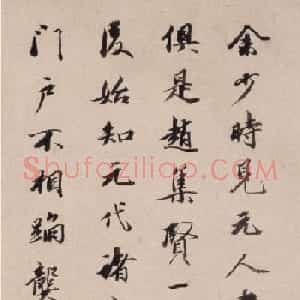 余少時見元人
俱是趙集賢一
後始知元代諸
門戶不相蹈襲
Shufaziliao.com